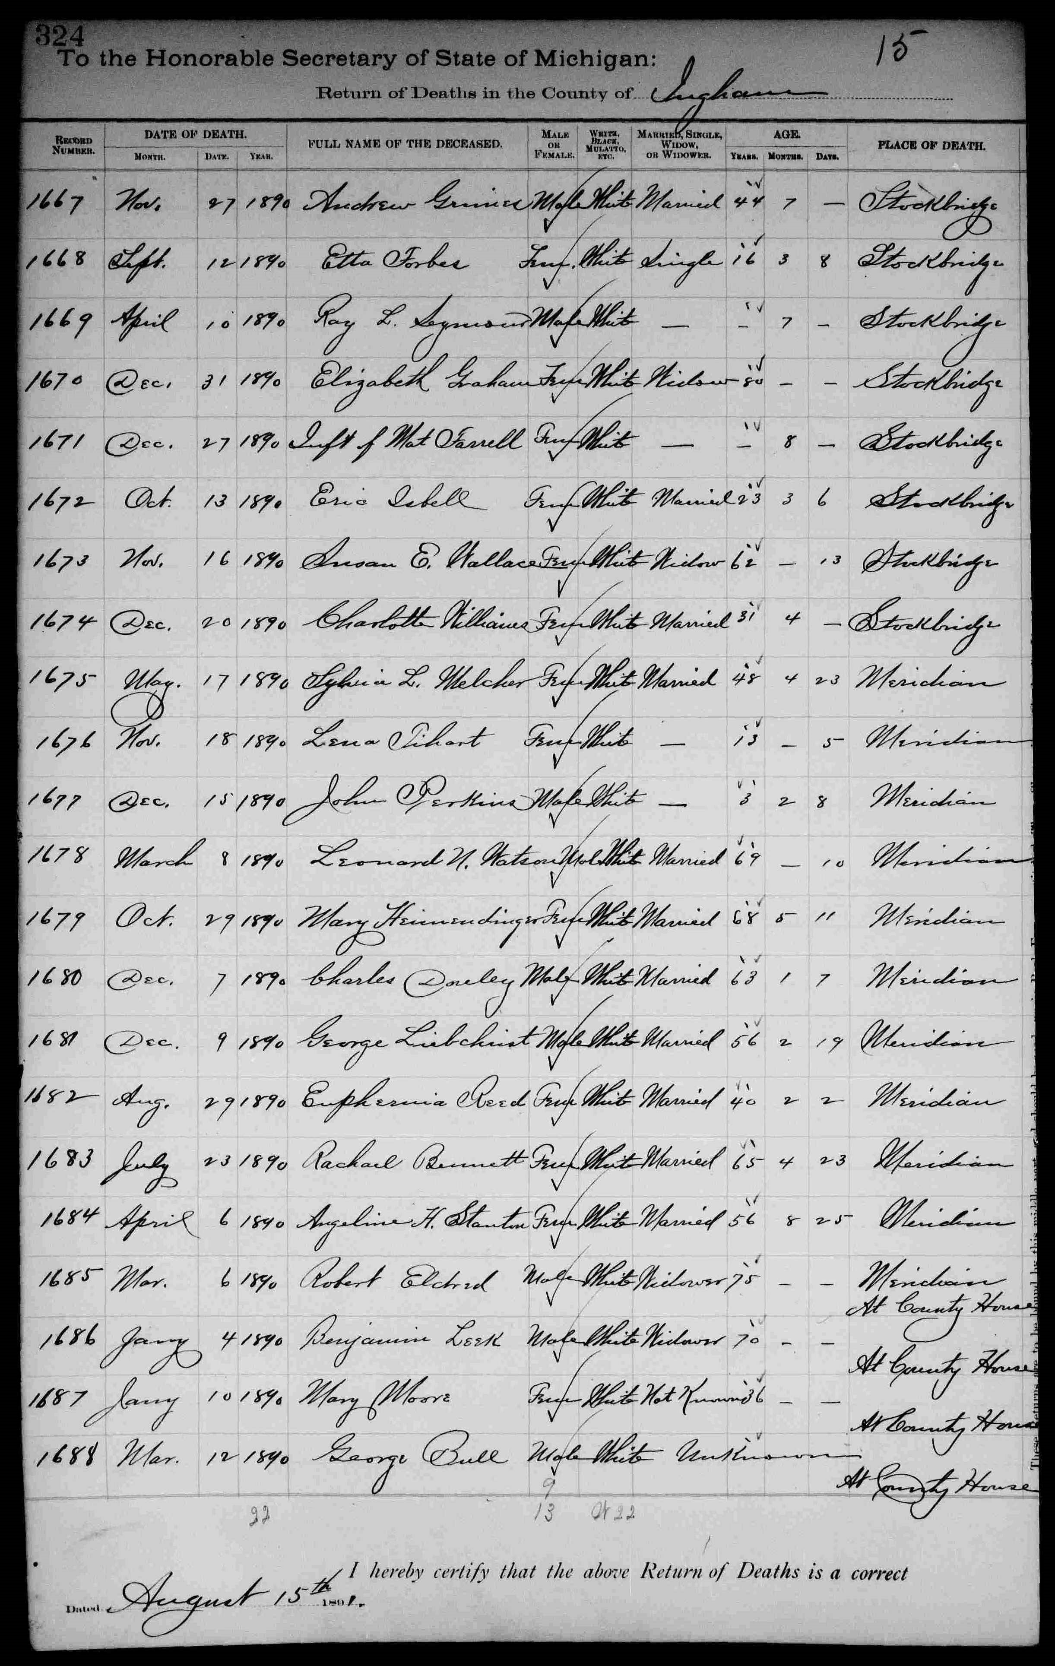 324
15
To the Honorable Secretary of State of Michigan:
Return of Deaths in the County of Ingham
RECORD NUMBER. DATE OF DEATH. MONTH. DATE. YEAR. FULL NAME OF THE DECEASED. MALE OR FEMALE. WHITE, BLACK, MULATTO, ETC. MARRIED, SINGLE, WIDOW, OR WIDOWER. AGE. YEARS. MONTHS. DAYS. PLACE OF DEATH.
1667 Nov. 27 1890 Andrew Grimes Male White Married 44 7 — Stockbridge
1668 Sept. 12 1890 Etta Forbes Fem. White Single 16 3 8 Stockbridge
1669 April 10 1890 Ray L. Seymour Male White — - 7 - Stockbridge
1670 Dec. 31 1890 Elizabeth Graham Fem White Widow 80 - - Stockbridge
1671 Dec. 27 1890 Inft of Mat Farrell Fem White — - 8 - Stockbridge
1672 Oct. 13 1890 Eric Isbell Fem White Married 23 3 6 Stockbridge
1673 Nov. 16 1890 Susan E. Wallace Fem White Widow 62 — 13 Stockbridge
1674 Dec. 20 1890 Charlotte Williams Fem White Married 31 4 — Stockbridge
1675 May. 17 1890 Sylvia L. Melcher Fem White Married 48 4 23 Meridian
1676 Nov. 18 1890 Lena Tihart Fem White — 13 - 5 Meridian
1677 Dec. 15 1890 John Perkins Male White — 3 2 8 Meridian
1678 March 8 1890 Leonard N. Watson Male White Married 69 — 10 Meridian
1679 Oct. 29 1890 Mary Heimendinger Fem White Married 68 5 11 Meridian
1680 Dec. 7 1890 Charles Douley Male White Married 63 1 7 Meridian
1681 Dec. 9 1890 George Liebchrist Male White Married 56 2 19 Meridian
1682 Aug. 29 1890 Euphemia Reed Fem White Married 40 2 2 Meridian
1683 July 23 1890 Rachael Bennett Fem White Married 65 4 23 Meridian
1684 April 6 1890 Angeline H. Stanton Fem White Married 56 8 25 Meridian
1685 Mar. 6 1890 Robert Eldred Male White Widower 75 - - Meridian
At County House
1686 Jany 4 1890 Benjamin Leek Male White Widower 70 - -
At County House
1687 Jany 10 1890 Mary Moore Fem White Not Known 36 - -
At County House
1688 Mar. 12 1890 George Bull Male White Unknown
At County House
9
22 13 W 22
I hereby certify that the above Return of Deaths is a correct
Dated August 15th 1891.